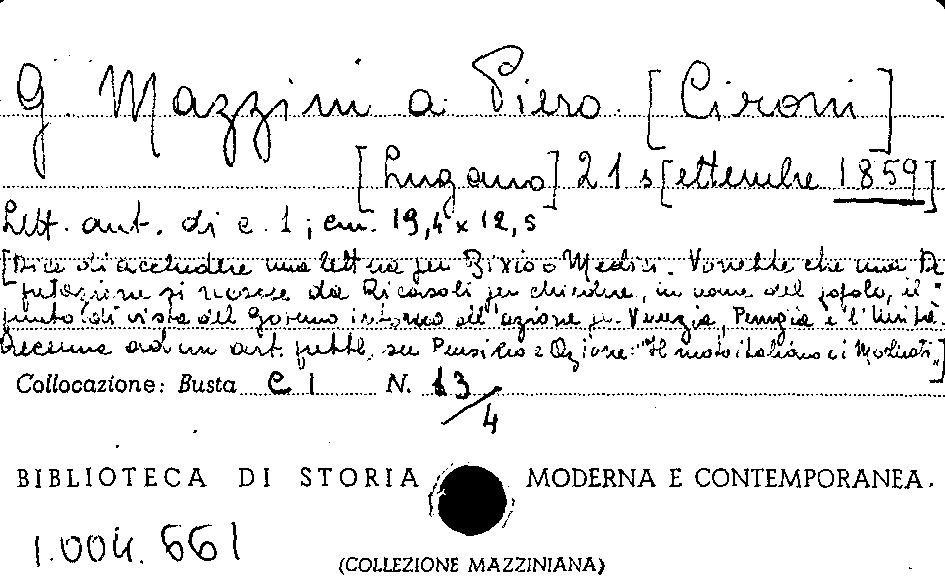 G. Mazzini a Piero [Cironi]
[Lugano] 21 s[ettembre 1859]
Lett. aut. di c. 1; cm. 19,4 x 12,5
[Dice di accludere una lett ra per Bixio o Medici. Vorrebbe che una De
putazione si recasse da Ricasoli per chiedere, in nome del popolo, il
punto di vista del Governo intorno all'azione per Venezia, Perugia e l'Unità.
Accenna ad un art. pubb. su Pensiero e Azione: "Il moto italiano e i Moderati"]
Collocazione: Busta C I N. 13/4
BIBLIOTECA DI STORIA MODERNA E CONTEMPORANEA.
1.004.661
(COLLEZIONE MAZZINIANA)